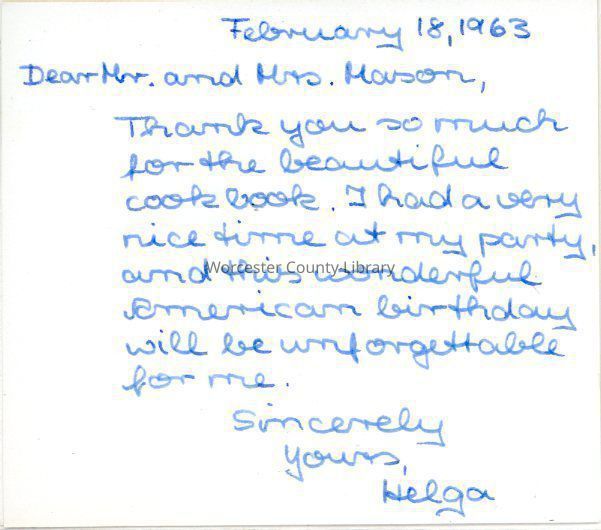 February 18, 1963
Dear Mr. and Mrs. Mason,
Thank you so much
for the beautiful
cook book. I had a very
nice time at my party,
and this wonderful
Worcester County Library
American birthday
will be unforgettable
for me.
Sincerely
yours,
Helga